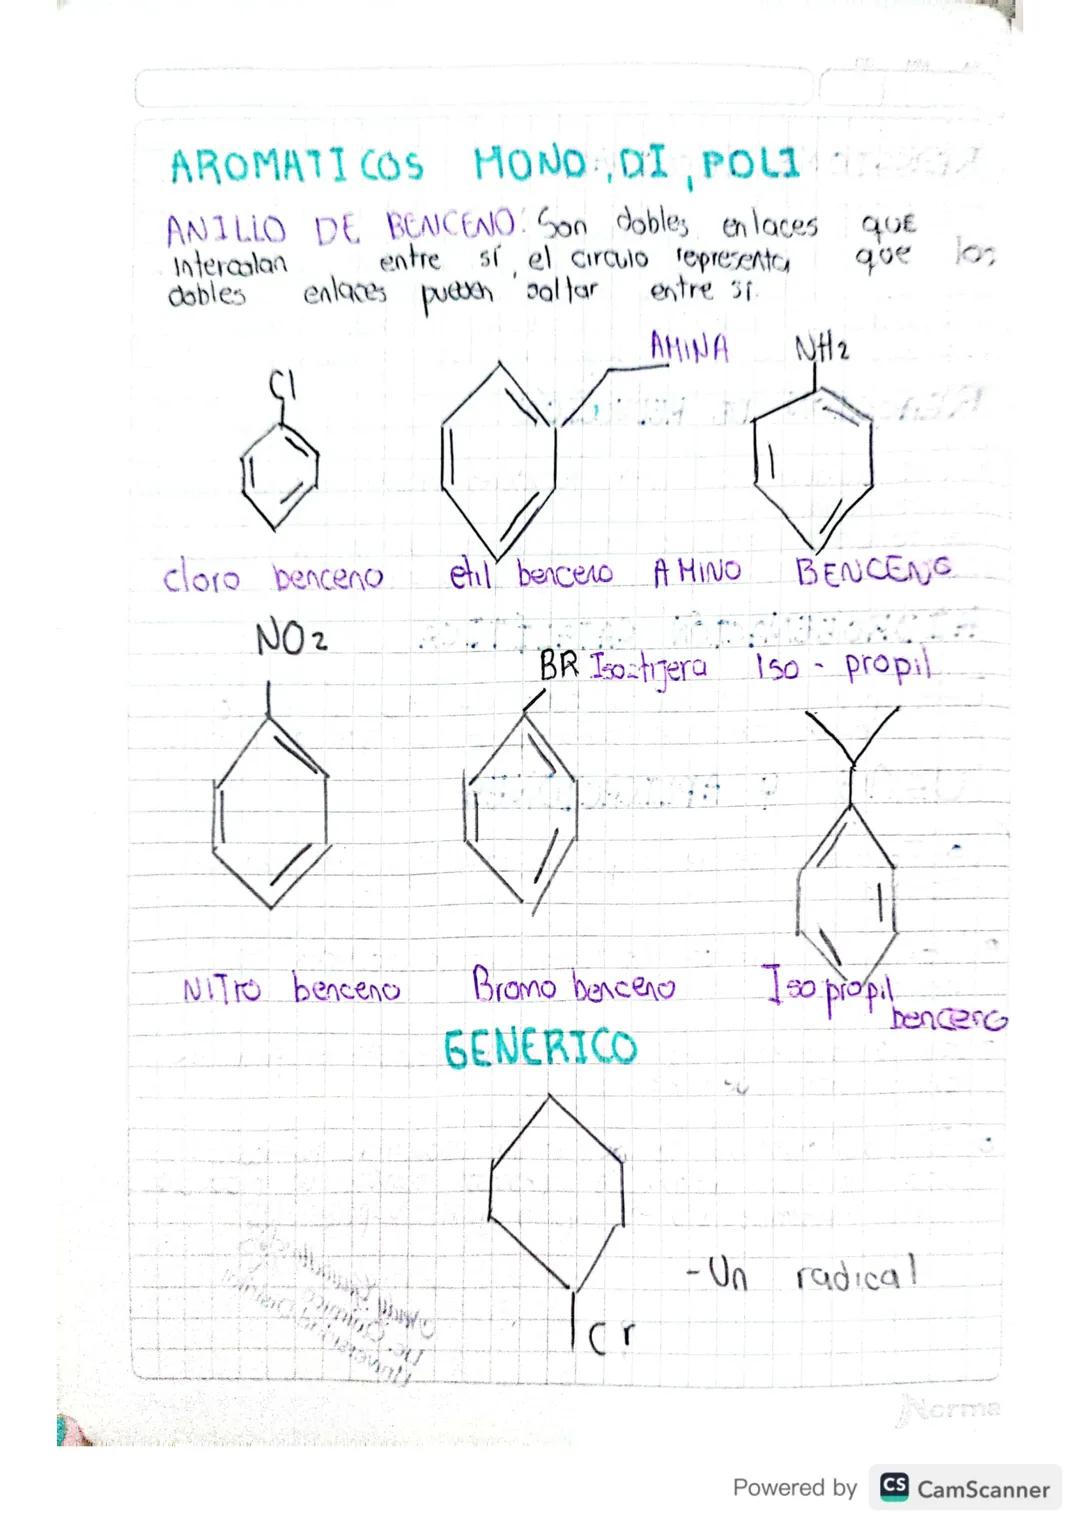 AROMATICOS MONO, DI, POLI
ANILLO DE BENCENO: Son dobles enlaces que
intercalan entre sí, el circulo representa que los
dobles enlaces pueden saltar entre sí.
AMINA NH2
Cl
cloro benceno etil benceno AMINO BENCENO
NO2
BR Iso=tijera Iso - propil
NITro benceno Bromo benceno Iso propil
benceno
GENERICO
- Un radical
Cr
Norma
Powered by CS CamScanner